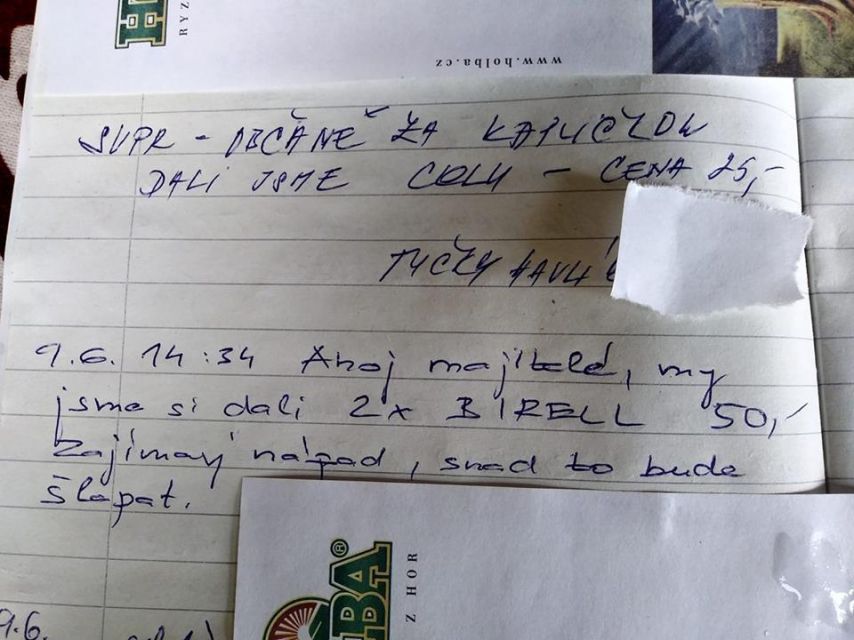 RYZ
www.holba.cz
SUPR - OBČANĚ ZA KAPLIČKOU
DALI JSME COLU - CENA 25,-
TYČKY
9.6. 14:34 Ahoj majitelé, my
jsme si dali 2x BIRELL 50,-
Zajímavý nápad, snad to bude
šlapat.
HOLBA®
Z HOR
9.6.